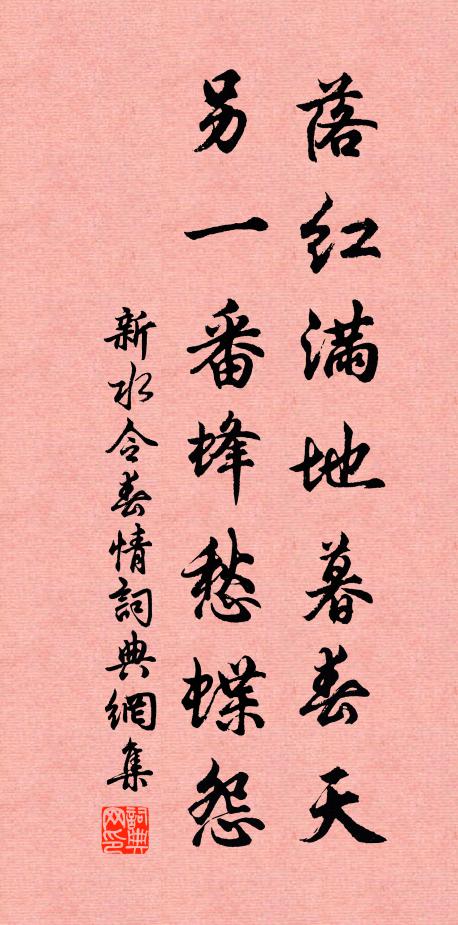 落红满地暮春天
另一番蜂愁蝶怨
新水令春情詞典網集
詞典网印